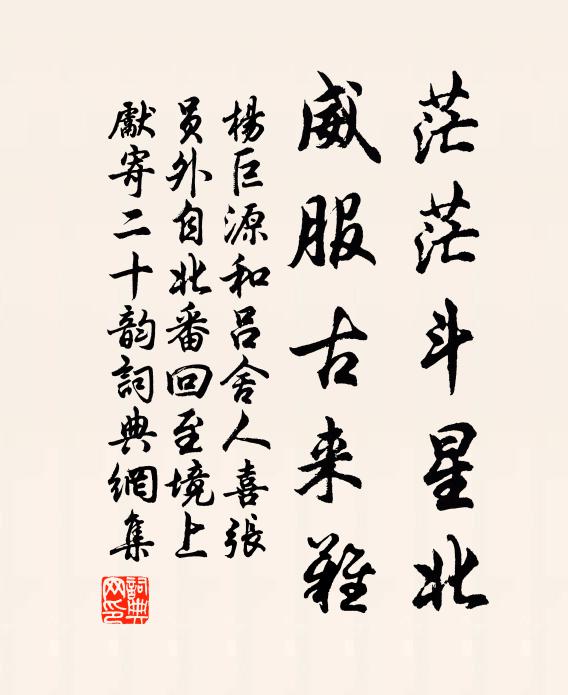 茫茫斗星北
威服古来难
楊巨源和吕舍人喜張
员外自北番回至境上
獻寄二十韵詞典網集
詞典网印